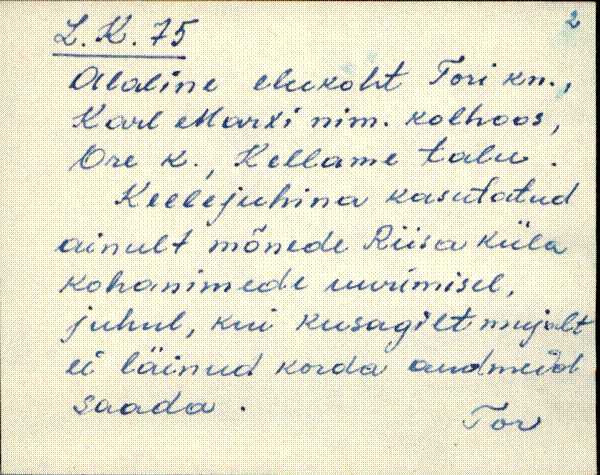 2
L. K. 75
Alaline elukoht Tori kn.,
Karl Marxi nim. kolhoos,
Ore k., Kellame talu.
Keelejuhina kasutatud
ainult mõnede Riisa küla
kohanimede uurimisel,
juhul, kui kusagilt mujalt
ei läinud korda andmeid
saada.
Tor